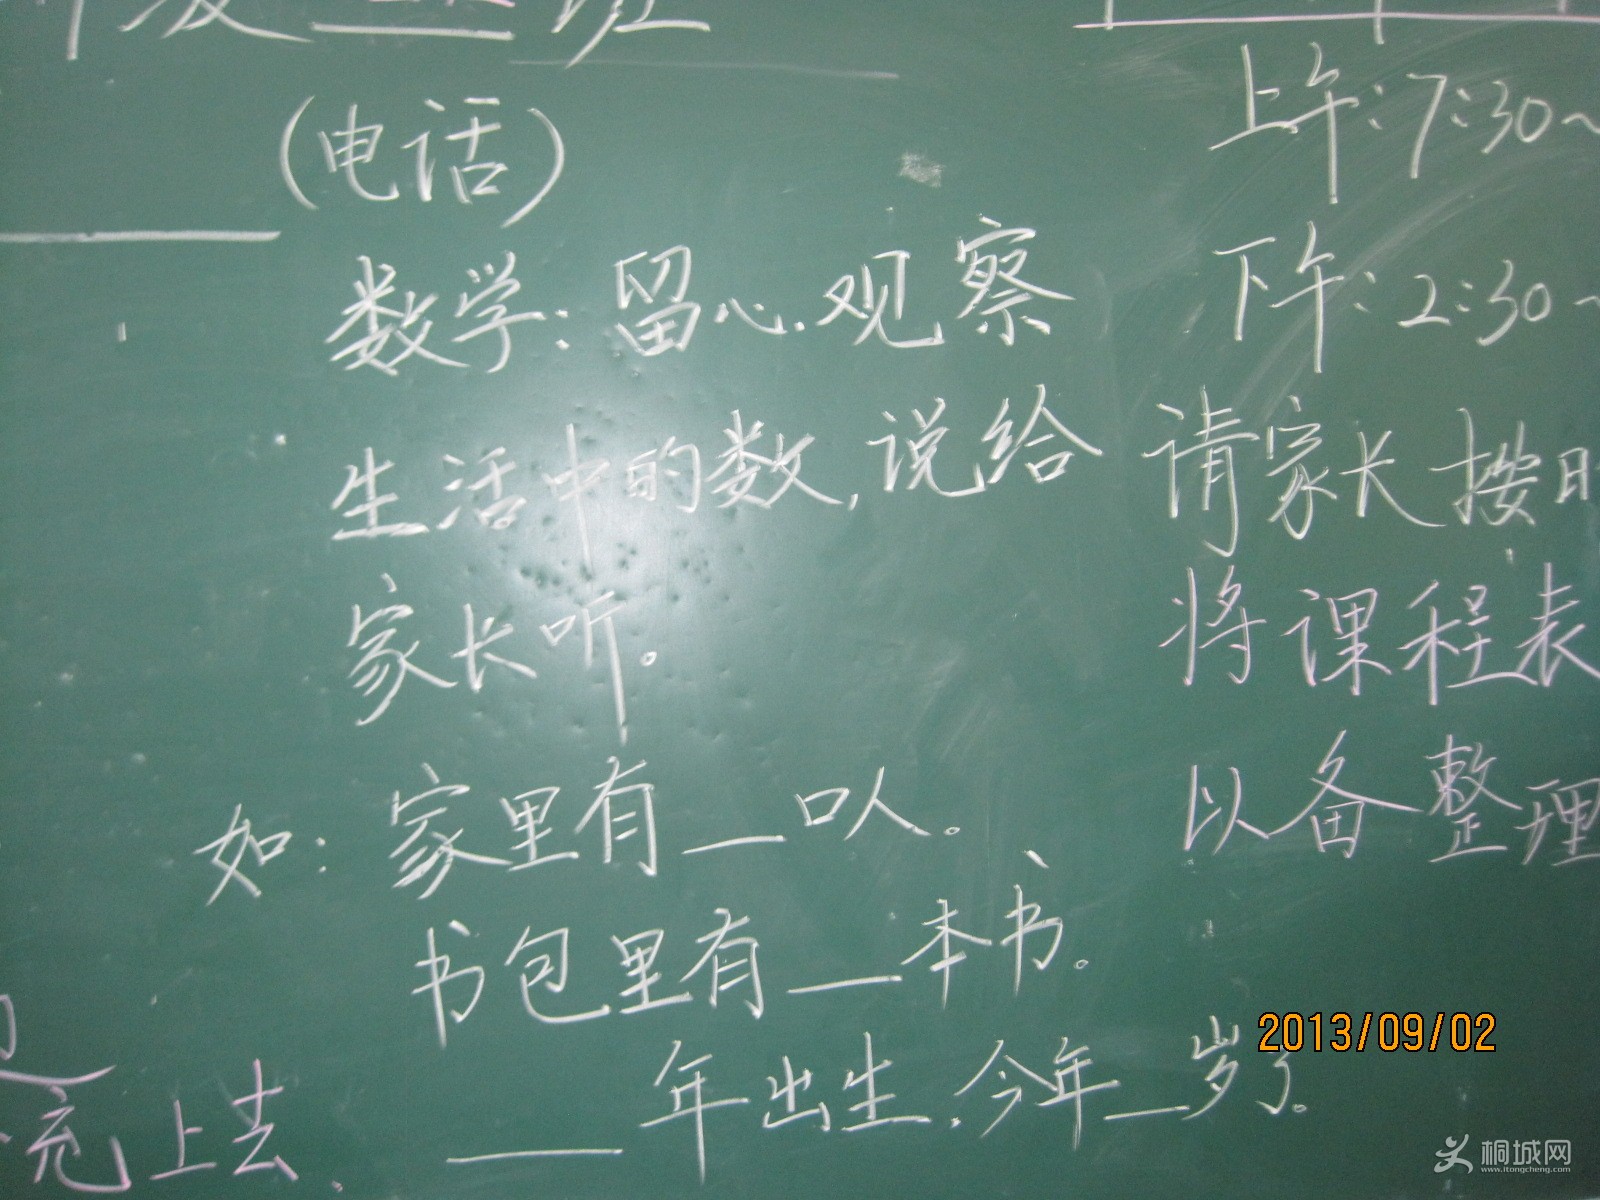 年级 二 班
(电话)
数学：留心观察
生活中的数，说给
家长听。
如：家里有__口人。
书包里有__本书。
____年出生，今年__岁了。
上去
上午：7:30~
下午：2:30~
请家长按时
将课程表
以备整理
2013/09/02
桐城网
www.itongcheng.com